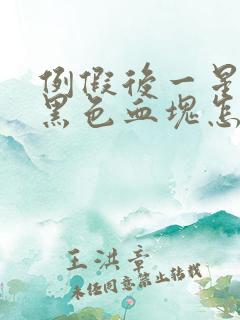 例假後一星
黑色血塊怎
王洪章
未经同意禁止转载